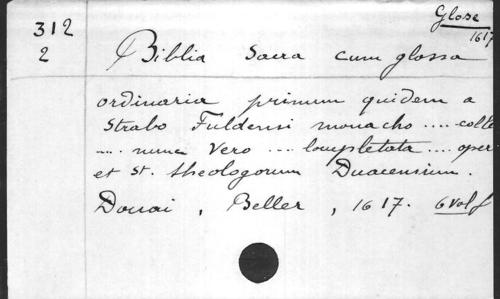 Glose
1617
312
2
Biblia Sacra cum glossa
ordinaria primum quidem a
Strabo Fuldensi monacho .... colle
.... nunc vero ... completata .... oper
et st. theologorum Duacensium.
Douai, Beller, 1617. 6 vol f